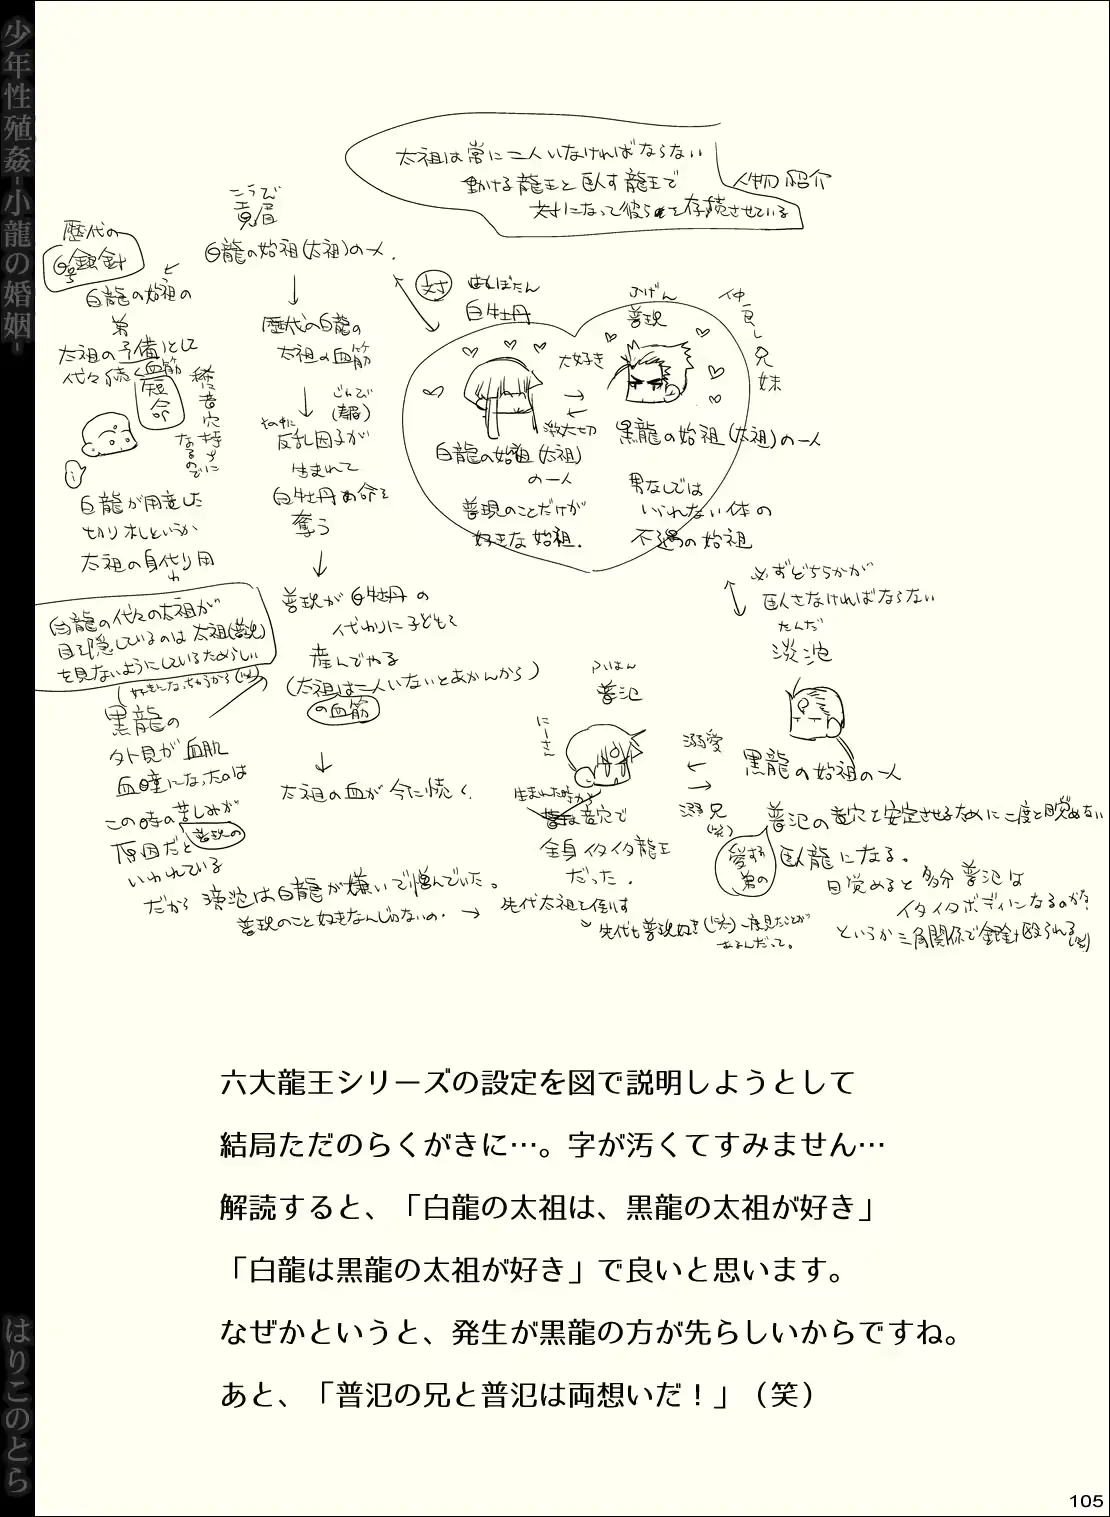 少年性殖姦-小龍の婚姻-
はりこのとら
太祖は常に二人いなければならない
動ける龍王と臥す龍王で
対になって彼らを存続させている
人物紹介
こうび
白龍の始祖(太祖)の一人.
歴代の
白龍の始祖の
弟
太祖の予備として
代々続く血筋
短命
稀に音穴持ちに
なるので
白龍が用意した
切り札というか
太祖の身代り用
白龍の代々の太祖が
目を隠しているのは太祖(普現)
を見ないようにしているためらしい
(好きになっちゃうから(笑))
黒龍の
外見が血肌
血瞳になったのは
この時の苦しみが
普現の
原因だと
いわれている
歴代の白龍の
太祖の血筋
その中に
反乱因子が
生まれて
白牡丹の命を
奪う
普現が白牡丹の
代わりに子どもを
産んでやる
(太祖は二人いないとあかんから)
の血筋
太祖の血が今に続く
対
はくぼたん
白牡丹
ふげん
普現
仲良し兄妹
大好き
激大切
白龍の始祖(太祖)
の一人
普現のことだけが
好きな始祖.
黒龍の始祖(太祖)の一人
男なしでは
いられない体の
不遇の始祖
必ずどちらかが
臥さなければならない
たんだ
淡沱
黒龍の始祖の一人
ふはん
普氾
にーさん
溺愛
溺兄
(笑)
生まれた時から
音穴で
全身イタイタ龍王
だった.
愛する
弟の
普氾の音穴を安定させるために二度と目覚めない
臥龍になる。
目覚めると多分普氾は
イタイタボディになるのか?
というか三角関係で
だから淡沱は白龍が嫌いで憎んでいた。
普現のこと好きなんじゃないの.
先代太祖を倒す
先代も普現好き(笑)一度見たことが
あるんだって。
六大龍王シリーズの設定を図で説明しようとして
結局ただのらくがきに…。字が汚くてすみません…
解読すると、「白龍の太祖は、黒龍の太祖が好き」
「白龍は黒龍の太祖が好き」で良いと思います。
なぜかというと、発生が黒龍の方が先らしいからですね。
あと、「普氾の兄と普氾は両想いだ！」（笑）
105